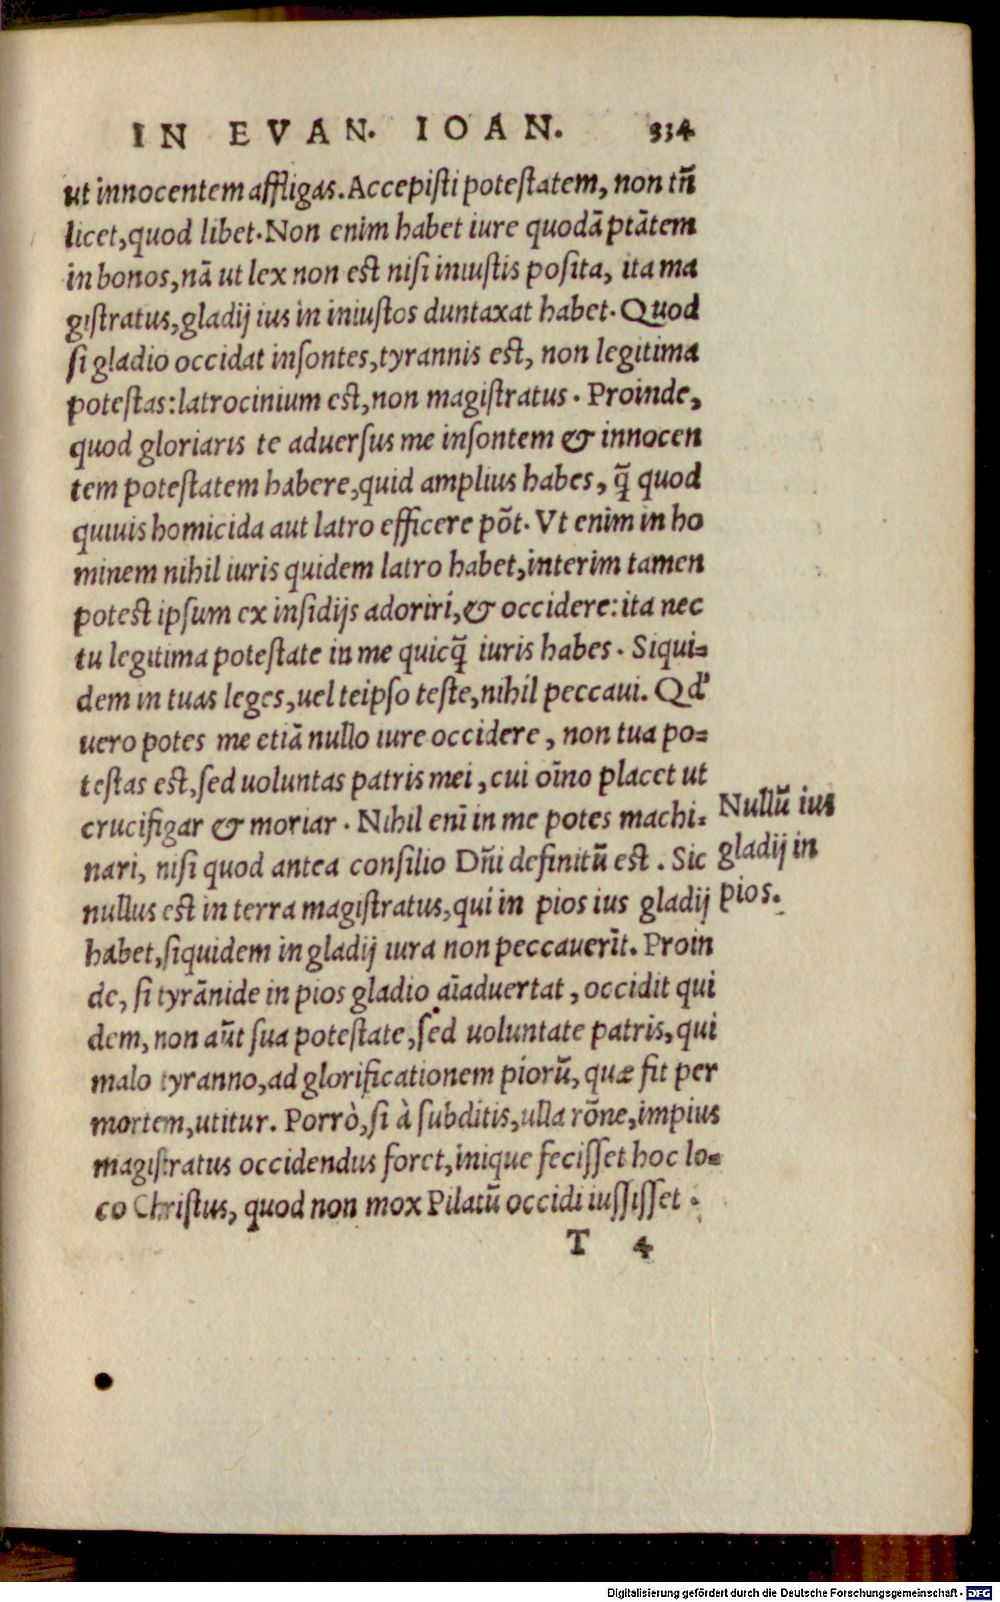 IN EVAN. IOAN. 334
ut innocentem affligas. Accepisti potestatem, non tñ
licet, quod libet. Non enim habet iure quodā ptātem
in bonos, nā ut lex non est nisi iniustis posita, ita ma
gistratus, gladij ius in iniustos duntaxat habet. Quod
si gladio occidat insontes, tyrannis est, non legitima
potestas: latrocinium est, non magistratus. Proinde,
quod gloriaris te aduersus me insontem & innocen
tem potestatem habere, quid amplius habes, q̃ quod
quiuis homicida aut latro efficere põt. Vt enim in ho
minem nihil iuris quidem latro habet, interim tamen
potest ipsum ex insidijs adoriri, & occidere: ita nec
tu legitima potestate in me quicq̃ iuris habes. Siqui=
dem in tuas leges, uel teipso teste, nihil peccaui. Qd'
uero potes me etiā nullo iure occidere, non tua po=
testas est, sed uoluntas patris mei, cui oīno placet ut
crucifigar & moriar. Nihil enī in me potes machi=
nari, nisi quod antea consilio Dñi definitū est. Sic
nullus est in terra magistratus, qui in pios ius gladij
habet, siquidem in gladij iura non peccauerīt. Proin
de, si tyrānide in pios gladio aīaduertat, occidit qui
dem, non aūt sua potestate, sed uoluntate patris, qui
malo tyranno, ad glorificationem piorū, quæ fit per
mortem, utitur. Porrò, si à subditis, ulla rōne, impius
magistratus occidendus foret, inique fecisset hoc lo=
co Christus, quod non mox Pilatū occidi iussisset.
Nullū ius
gladij in
pios.
T 4
Digitalisierung gefördert durch die Deutsche Forschungsgemeinschaft - DFG